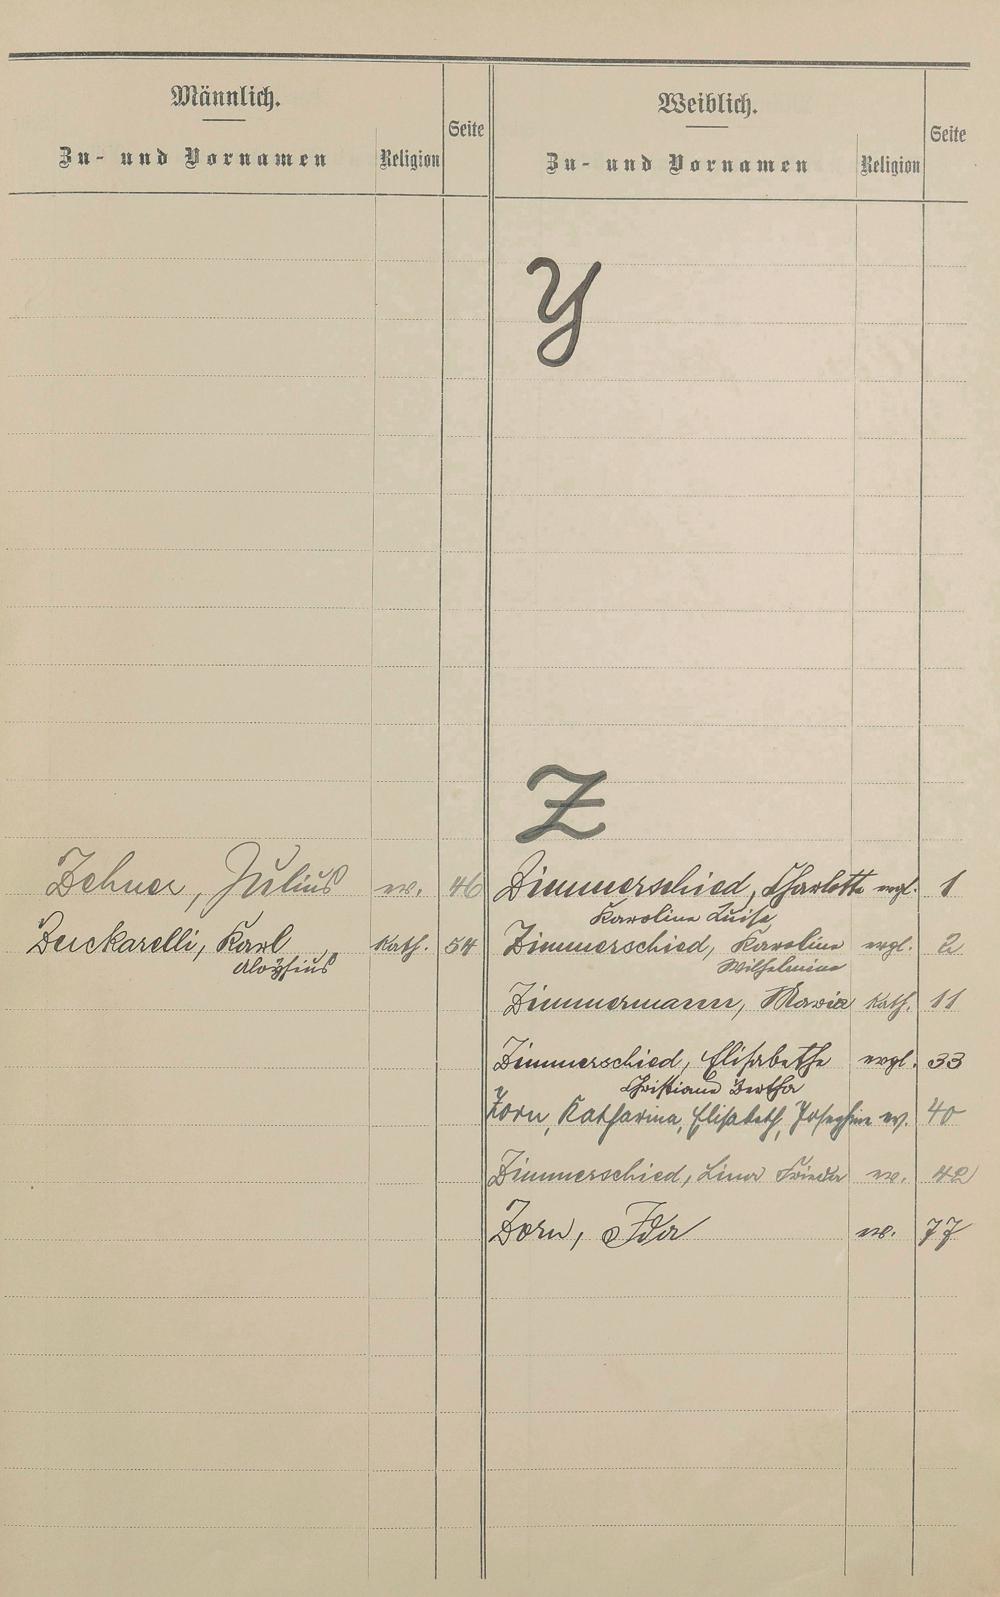 Männlich.
Zu- und Vornamen
Religion
Seite
Zehner, Julius ev. 46
Zuckarelli, Karl kath. 54
Aloysius
Weiblich.
Zu- und Vornamen
Religion
Seite
Y
Z
Zimmerschied, Charlotte evgl. 1
Karoline Luise
Zimmerschied, Karoline evgl. 2
Wilhelmine
Zimmermann, Maria kath. 11
Zimmerschied, Elisabethe evgl. 33
Christiane Bertha
Zorn, Katharina, Elisabeth, Josephine ev. 40
Zimmerschied, Lina Frieda ev. 42
Zorn, Ida ev. 77